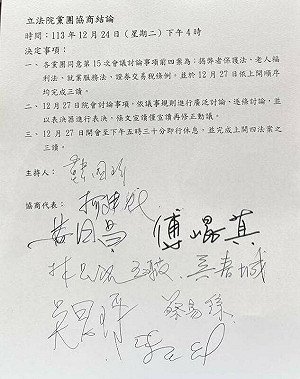 立法院黨團協商結論
時間：113 年 12 月 24 日（星期二）下午 4 時
決定事項：
一、各黨團同意第 15 次會議討論事項前四案為：揭弊者保護法、老人福
利法、就業服務法、證券交易稅條例，並於 12 月 27 日依上開順序
均完成三讀。
二、12 月 27 日院會討論事項，依議事規則進行廣泛討論、逐條討論，並
以表決器進行表決，條文宣讀僅宣讀再修正動議。
三、12 月 27 日開會至下午五時三十分即行休息，並完成上開四法案之
三讀。
主持人：韓國瑜
協商代表：柯建銘
黃國昌 傅崐萁
林思銘 王鴻薇 吳春城
吳思瑤 蔡易餘